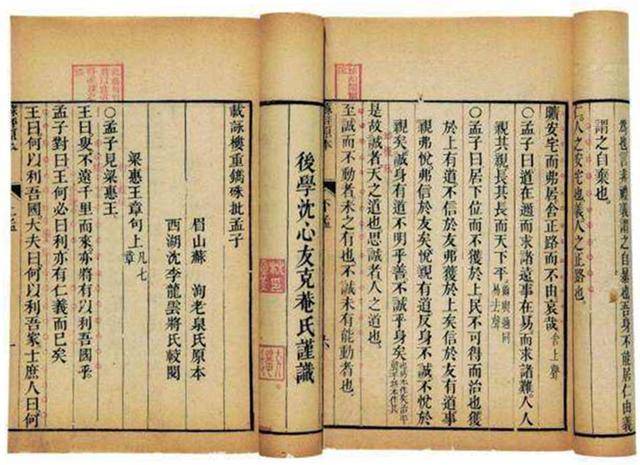 為也言非禮義謂之自暴也吾身不能居仁由義
謂之自棄也。
仁人之安宅也義人之正路也。
曠安宅而弗居舍正路而不由哀哉 舍上聲
○孟子曰道在邇而求諸遠事在易而求諸難人人
親其親長其長而天下平 易去聲
○孟子曰居下位而不獲於上民不可得而治也獲
於上有道不信於友弗獲於上矣信於友有道事
親弗悅弗信於友矣悅親有道反身不誠不悅於
親矣誠身有道不明乎善不誠乎身矣
是故誠者天之道也思誠者人之道也。
至誠而不動者未之有也不誠未有能動者也。
下孟
六
後學沈心友克菴氏謹識
載詠樓重鐫硃批孟子
眉山蘇 洵老泉氏原本
西湖沈李龍雲將氏較閱
梁惠王章句上 凡七章
○孟子見梁惠王。
王曰叟不遠千里而來亦將有以利吾國乎
孟子對曰王何必曰利亦有仁義而已矣
王曰何以利吾國大夫曰何以利吾家士庶人曰何
上孟
一